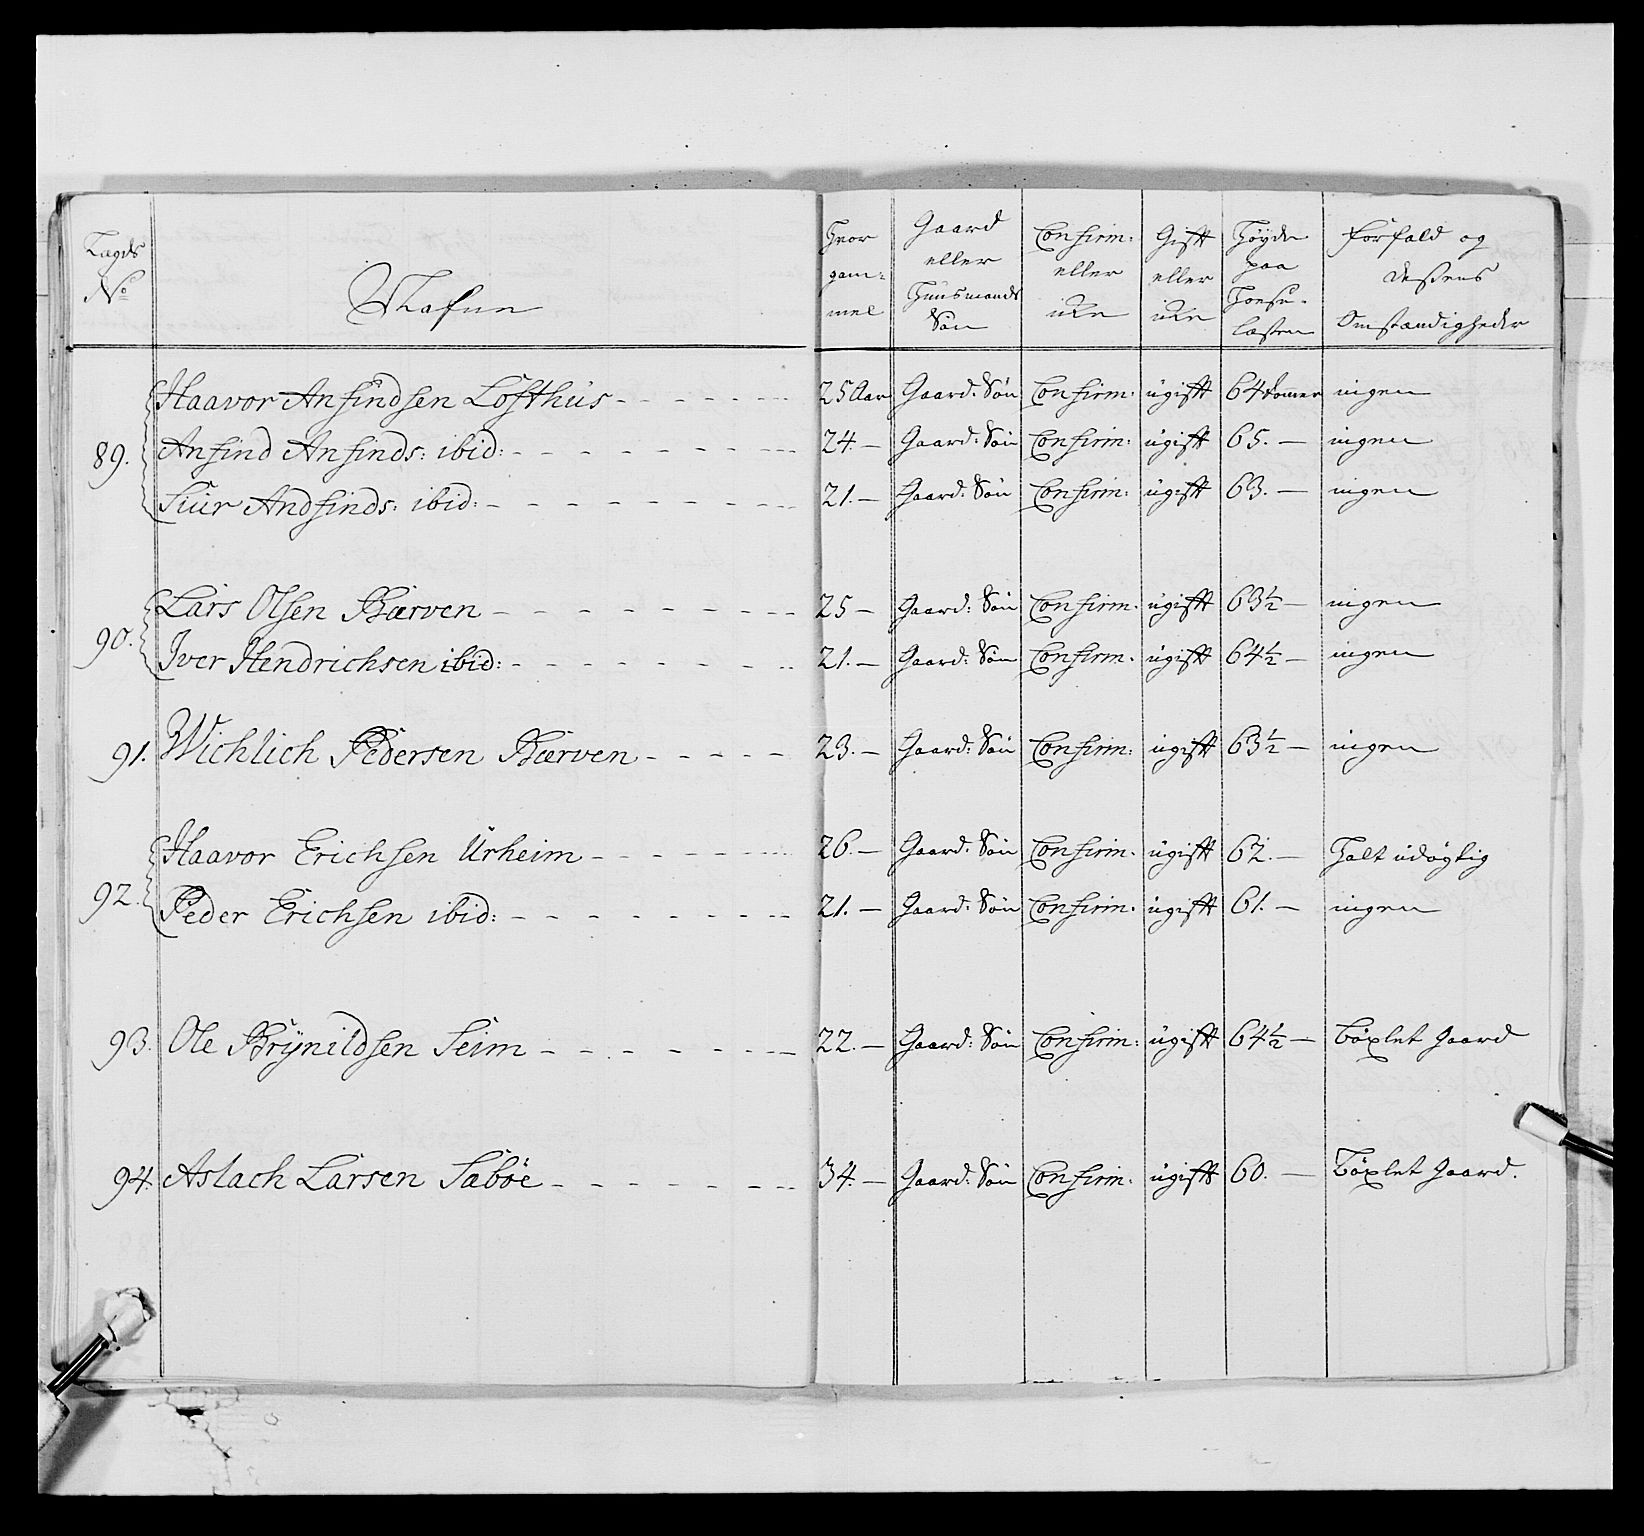 Lægds No
Nafne
Hvor gam= mel
Gaard eller Huusmands Søn
Confirm: eller icke
Gift eller icke
Høyde paa Hosse- læsten
Forfald og deßens Omstændigheder
89. Haavor Ansindsen Lofthus 25 Aar Gaard: Søn Confirm: ugift 64 tommer ingen
Ansind Ansinds: ibid: 24. Gaard: Søn Confirm: ugift 65. ingen
Siur Andsinds: ibid: 21. Gaard: Søn Confirm: ugift 63. ingen
90. Lars Olsen Bærven 25 Gaard: Søn Confirm. ugift 63 1/2 ingen
Iver Hendrichsen ibid: 21. Gaard: Søn Confirm. ugift 64 1/2 ingen
91. Wichlich Pedersen Bærven 23. Gaard: Søn Confirm: ugift 63 1/2 ingen
92. Haavor Erichsen Urheim 26. Gaard: Søn Confirm. ugift 62. Halt udøgtig
Peder Erichsen ibid: 21. Gaard: Søn Confirm. ugift 61. ingen
93. Ole Brÿnildsen Seim 22. Gaard: Søn Confirm: ugift 64 1/2 bøxlet Gaard
94. Aslach Larsen Sæbøe 34. Gaard: Søn Confirm. ugift 60. bøxlet Gaard.